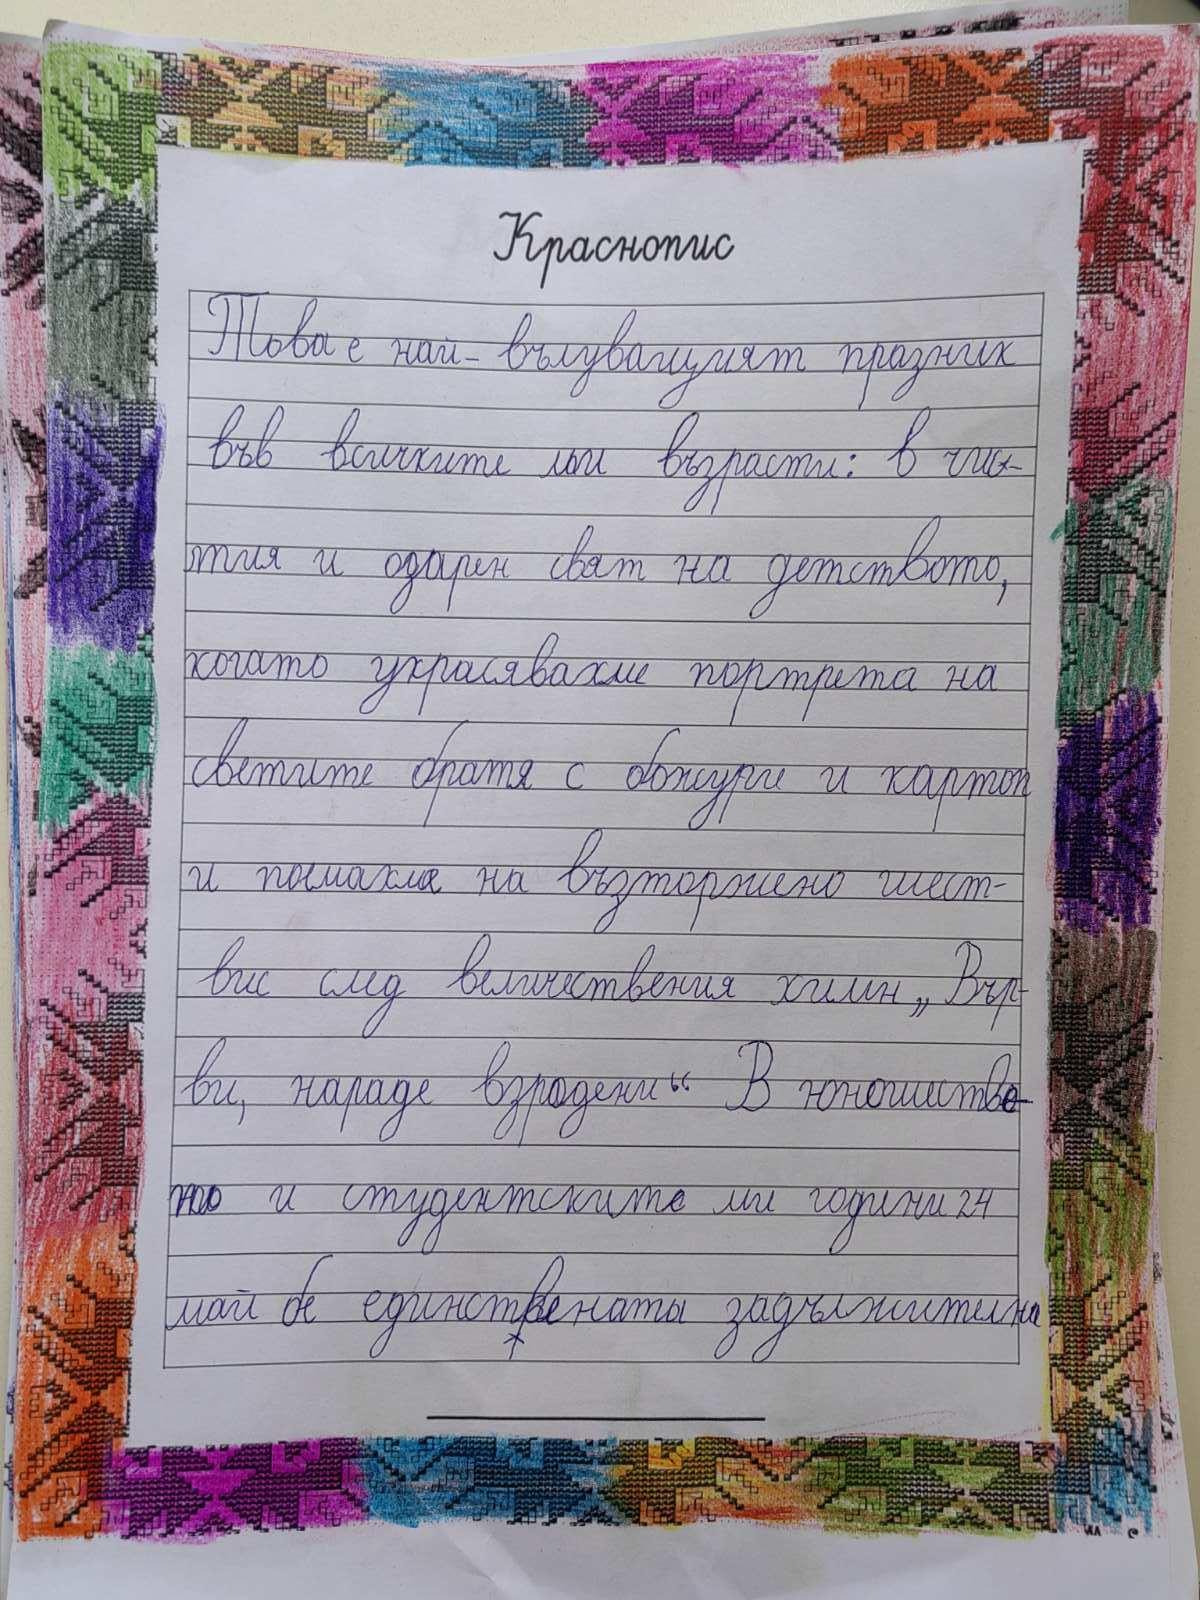 Краснопис
Това е най-вълуващият празник
във всичките ми възрасти: в чис-
тия и одарен свят на детството,
когато украсявахме портрета на
светите братя с божури и картоп
и помахме на възторжено шест-
вис след величествения химн „Вър-
ви, нараде взродени“ В юношество-
то и студентските ми години 24
май бе единствената задължителна